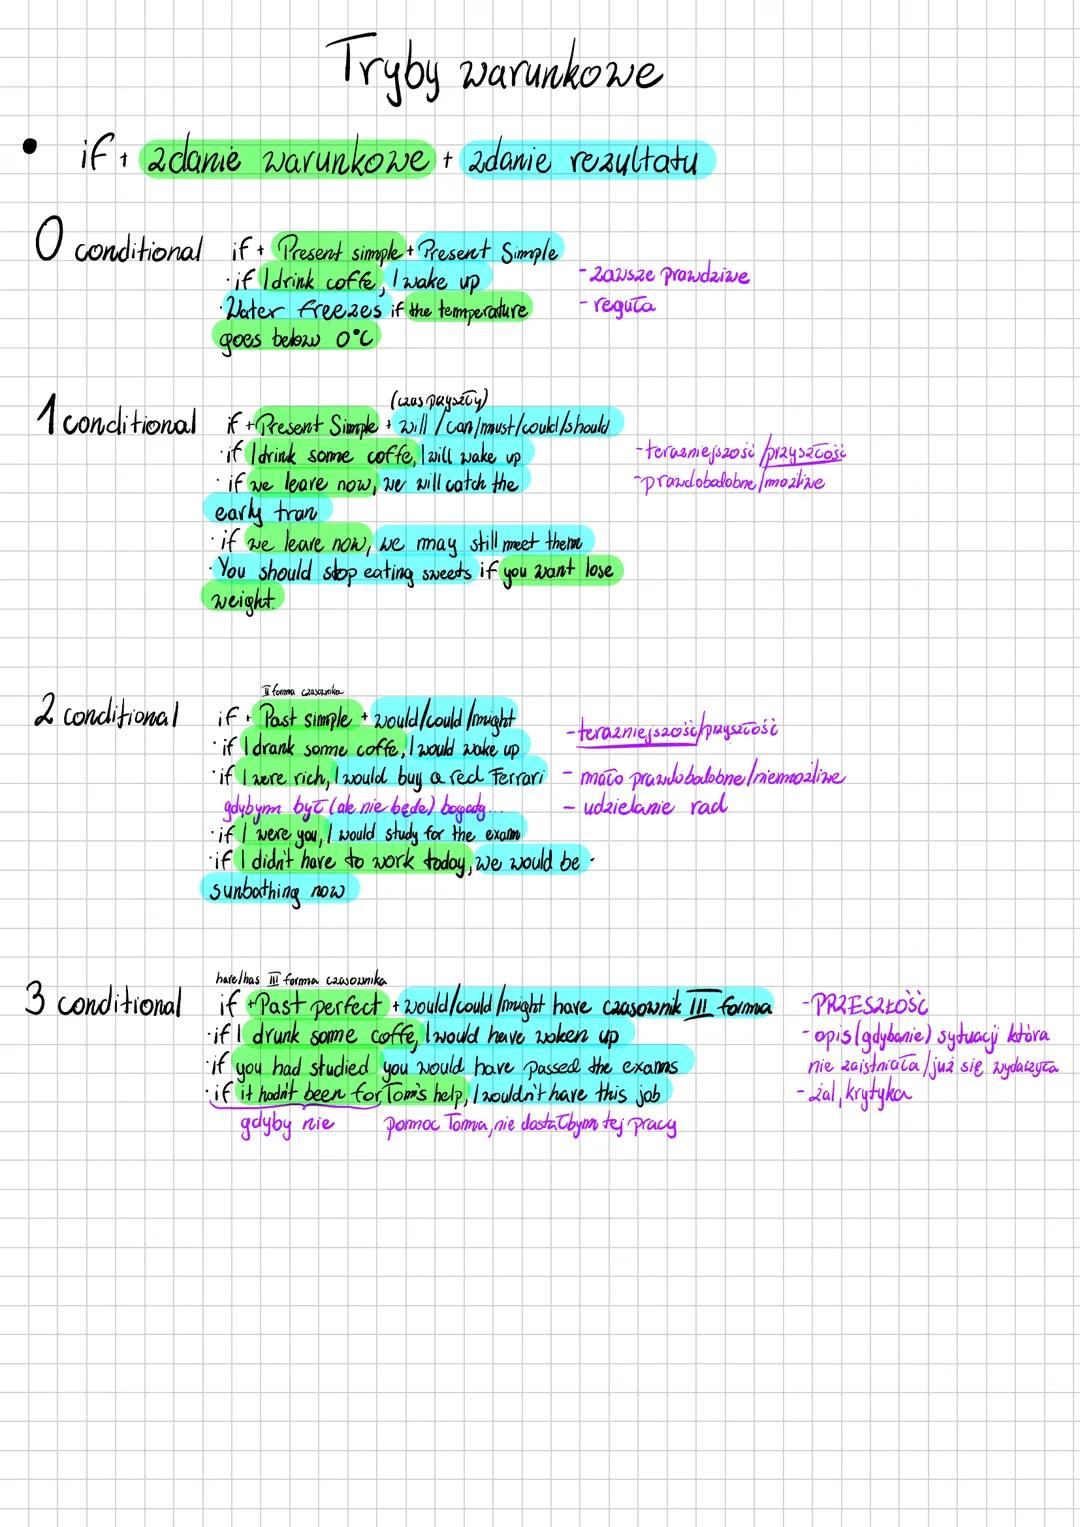 Tryby warunkowe
• if + zdanie warunkowe + zdanie rezultatu
0 conditional if + Present simple + Present Simple
· if I drink coffe, I wake up
- zawsze prawdziwe
· Water freezes if the temperature
- reguła
goes below 0°C
(czas przyszły)
1 conditional if + Present Simple + will / can/must/could/should
· if I drink some coffe, I will wake up
- teraźniejszość/przyszłość
· if we leave now, we will catch the
- prawdobodobne/możliwe
early tran
· if we leave now, we may still meet them
· You should stop eating sweets if you want lose
weight.
II forma czasownika
2 conditional if + Past simple + would/could/might
- teraźniejszość/przyszłość
· if I drank some coffe, I would wake up
· if I were rich, I would buy a red Ferrari
- mało prawdobodobne/niemożliwe
gdybym był (ale nie będę) bogaty...
- udzielanie rad
· if I were you, I would study for the exam
· if I didn't have to work today, we would be
sunbathing now
have/has III forma czasownika
3 conditional if + Past perfect + would/could/might have czasownik III forma
- PRZESZŁOŚĆ
· if I drunk some coffe, I would have woken up
- opis (gdybanie) sytuacji która
nie zaistniała/już się wydarzyła
if you had studied you would have passed the exams
· if it hadn't been for Tom's help, I wouldn't have this job
- żal, krytyka
gdyby nie pomoc Toma, nie dostałbym tej pracy